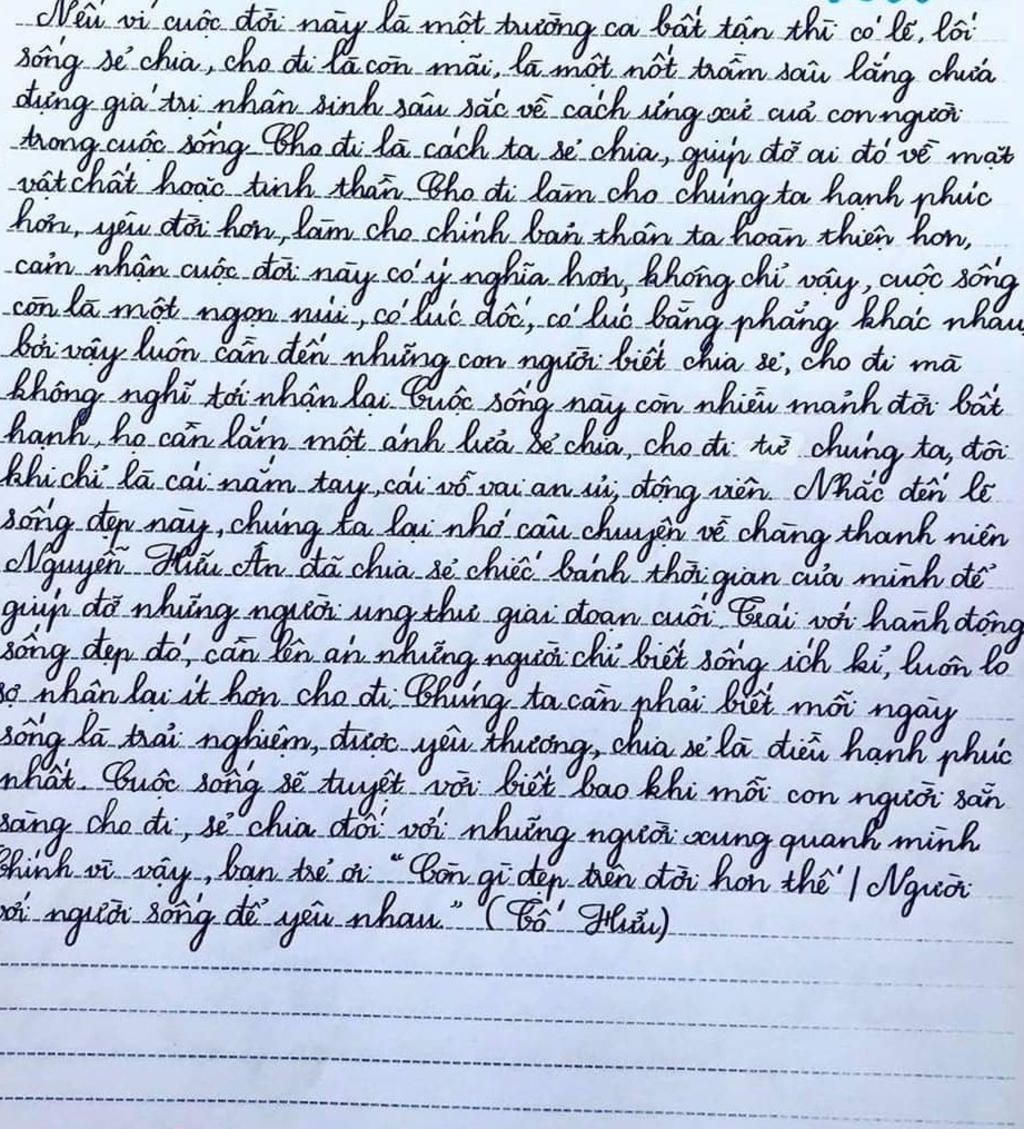 Nếu ví cuộc đời này là một trường ca bất tận thì có lẽ, lối
sống sẻ chia, cho đi là còn mãi, là một nốt trầm sâu lắng chứa
đựng giá trị nhân sinh sâu sắc về cách ứng xử của con người
trong cuộc sống. Cho đi là cách ta sẻ chia, giúp đỡ ai đó về mặt
vật chất hoặc tinh thần. Cho đi làm cho chúng ta hạnh phúc
hơn, yêu đời hơn, làm cho chính bản thân ta hoàn thiện hơn,
cảm nhận cuộc đời này có ý nghĩa hơn, không chỉ vậy, cuộc sống
còn là một ngọn núi, có lúc dốc, có lúc bằng phẳng khác nhau,
bởi vậy luôn cần đến những con người biết chia sẻ, cho đi mà
không nghĩ tới nhận lại. Cuộc sống này còn nhiều mảnh đời bất
hạnh, họ cần lắm một ánh lửa sẻ chia, cho đi từ chúng ta, đôi
khi chỉ là cái nắm tay, cái vỗ vai an ủi, động viên. Nhắc đến lẽ
sống đẹp này, chúng ta lại nhớ câu chuyện về chàng thanh niên
Nguyễn Hữu Ân đã chia sẻ chiếc bánh thời gian của mình để
giúp đỡ những người ung thư giai đoạn cuối. Trái với hành động
sống đẹp đó, cần lên án những người chỉ biết sống ích kỉ, luôn lo
sợ nhận lại ít hơn cho đi. Chúng ta cần phải biết mỗi ngày
sống là trải nghiệm, được yêu thương, chia sẻ là điều hạnh phúc
nhất. Cuộc sống sẽ tuyệt vời biết bao khi mỗi con người sẵn
sàng cho đi, sẻ chia đối với những người xung quanh mình
Chính vì vậy, bạn trẻ ơi "Còn gì đẹp trên đời hơn thế / Người
với người sống để yêu nhau" (Tố Hữu)